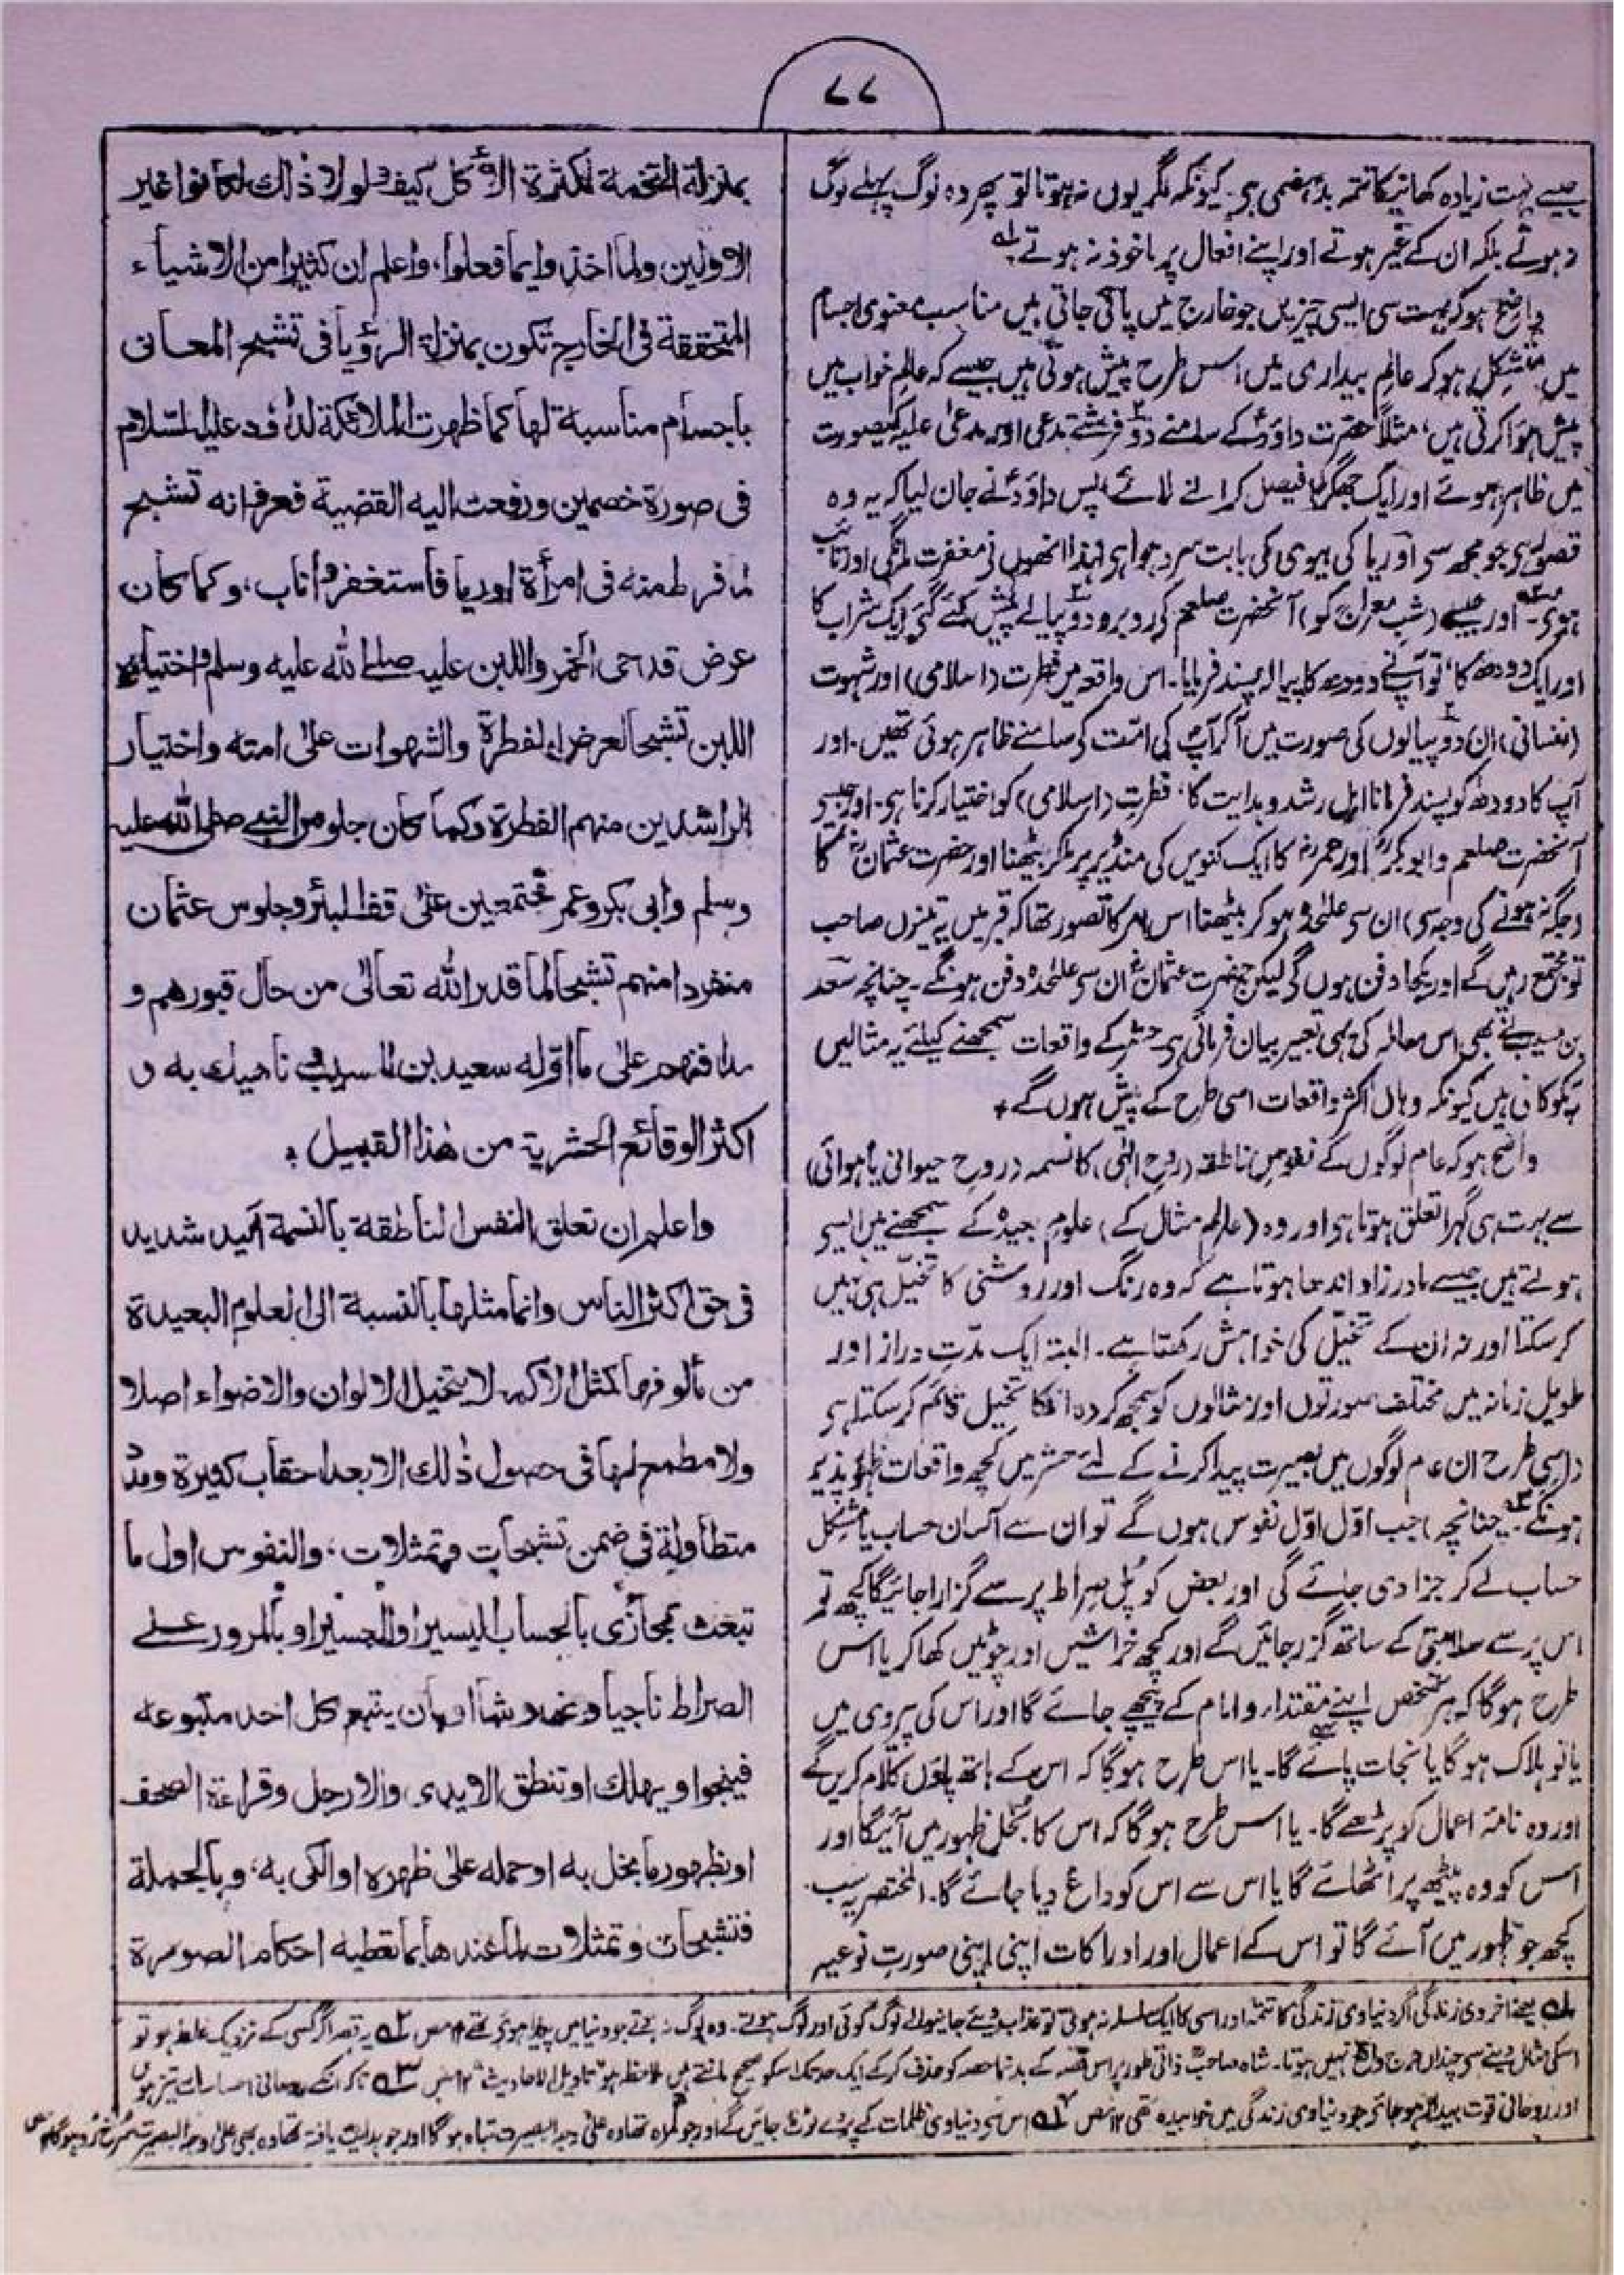 ٧٧
جیسے بہت زیادہ کھانیکا تتمہ بدہضمی ہی۔ کیونکہ اگر یوں نہ ہوتا تو پھر وہ لوگ پہلے لوگ
نہ ہوتے بلکہ ان کے غیر ہوتے اور اپنے افعال پر ماخوذ نہ ہوتے ؎۱
واضح ہو کہ بہت سی ایسی چیزیں جو خارج میں پائی جاتی ہیں مناسب معنوی اجسام
میں متشکل ہوکر عالم بیداری میں اس طرح پیش ہوتی ہیں جیسے کہ عالم خواب میں
پیش ہوا کرتی ہیں، مثلاً حضرت داؤدؑ کے سامنے دو فرشتے مدعی اور مدعیٰ علیہ کیصورت
میں ظاہر ہوئے اور ایک جھگڑا فیصل کرانے لائے، پس داؤدؑ نے جان لیا کہ یہ وہ
قصور ہی جو مجھ سی اوریا کی بیوی کی بابت سرزد ہوا ہی لہٰذا انھوں نی مغفرت مانگی اور تائب
ہوی ؎۲ اور جیسے (شب معراج کو) آنحضرت صلعم کی روبرو دو پیالے پیش کئے گئی ایک شراب کا
اور ایک دودھ کا، تو آپ نے دودھ کا پیالہ پسند فرمایا۔ اس واقعہ میں فطرت (اسلامی) اور شہوت
(نفسانی) ان دو پیالوں کی صورت میں آکر آپ کی امّت کی سامنے ظاہر ہوئی تھیں۔ اور
آپ کا دودھ کو پسند فرمانا اہل رشد و ہدایت کا، فطرت (اسلامی) کو اختیار کرنا ہی۔ اور جیسے
آنحضرت صلعم و ابوبکرؓ اور عمرؓ کا ایک کنویں کی منڈیر پر ملکر بیٹھنا اور حضرت عثمانؓ کا
(جگہ نہ ہونے کی وجہ سی) ان سی علٰحدہ ہوکر بیٹھنا اس امر کا تصور تھا کہ قبر میں یہ تینوں صاحب
تو مجتمع رہیں گے اور یکجا دفن ہوں گی لیکن حضرت عثمانؓ ان سی علٰحدہ دفن ہونگے۔ چنانچہ سعید
بن مسیب نے بھی اس معاملہ کی یہی تعبیر بیان فرمائی ہی۔ حشر کے واقعات سمجھنے کیلئے یہ مثالیں
تمکو کافی ہیں کیونکہ وہاں اکثر واقعات اسی طرح کے پیش ہوں گے +
واضح ہو کہ عام لوگوں کے نفوس ناطقہ (روح الٰہی) کا نسمہ (روح حیوانی یا ہوائی)
سے بہت ہی گہرا تعلق ہوتا ہی اور وہ (عالم مثال کے) علوم بعیدہ کے سمجھنے میں ایسی
ہوتے ہیں جیسے مادر زاد اندھا ہوتا ہے کہ وہ رنگ اور روشنی کا تخیّل ہی نہیں
کرسکتا اور نہ ان کے تخیّل کی خواہش رکھتا ہے۔ البتہ ایک مدّت دراز اور
طویل زمانہ میں مختلف صورتوں اور مثالوں کو سمجھ کر وہ انکا تخیل قائم کرسکتا ہی
(اسی طرح ان عام لوگوں میں بصیرت پیدا کرنے کے لئے حشر میں کچھ واقعات ظہور پذیر
ہونگے ؎۳ چنانچہ) جب اوّل اوّل نفوس ہوں گے تو ان سے آسان حساب یا مشکل
حساب لے کر جزا دی جائے گی اور بعض کو پُل صراط پر سے گزارا جائیگا کچھ تو
اس پر سے سلامتی کے ساتھ گزر جائیں گے اور کچھ خراشیں اور چوٹیں کھا کر یا اس
طرح ہوگا کہ ہر شخص اپنے مقتدا و امام کے پیچھے جائے گا اور اس کی پیروی میں
یا تو ہلاک ہوگا یا نجات پائے گا۔ یا اس طرح ہوگا کہ اس کے ہاتھ پاؤں کلام کریں گے
اور وہ نامۂ اعمال کو پڑھے گا۔ یا اس طرح ہوگا کہ اس کا بخل ظہور میں آئیگا اور
اس کو وہ پیٹھ پر اٹھائے گا یا اس سے اس کو داغ دیا جائے گا۔ المختصر یہ سب
کچھ جو ظہور میں آئے گا تو اس کے اعمال اور ادراکات اپنی اپنی صورت نوعیہ
بمنزلة التخمة لكثرة الأكل كيف ولولا ذالك لكانوا غير
الاولين ولما اخذوا بما فعلوا، واعلم ان كثيرا من الاشياء
المتحققة فى الخارج تكون بمنزلة الرؤيا فى تشبح المعانى
باجسام مناسبة لها كما ظهرت الملائكة لداؤد عليه السلام
فى صورة خصمين ورفعت اليه القضية فعرف انه تشبح
لما فرط منه فى امرأة اوريا فاستغفر واناب، وكما كان
عرض قدحى الخمر واللبن عليه صلى الله عليه وسلم واختياره
اللبن تشبحا لعرض الفطرة والشهوات على امته واختيار
الراشدين منهم الفطرة وكما كان جلوس النبى صلى الله عليه
وسلم وابى بكر وعمر مجتمعين على قف البئر وجلوس عثمان
منفردا منهم تشبحا لما قدر الله تعالى من حال قبورهم و
مدافنهم على ما اوله سعيد بن المسيب ناهيك به و
اكثر الوقائع الحشرية من هذا القبيل ؞
واعلم ان تعلق النفس الناطقة بالنسمة اكيد شديد
فى حق اكثر الناس وانما مثلها بالنسبة الى العلوم البعيدة
من مألوفها كمثل الاكمه لا يتخيل الالوان والاضواء اصلا
ولا مطمع لها فى حصول ذلك الا بعد احقاب كثيرة ومدد
متطاولة فى ضمن تشبحات وتمثلات، والنفوس اول ما
تبعث تجازى بالحساب اليسير او العسير او بالمرور على
الصراط ناجيا ومخدوشا او بان يتبع كل احد متبوعه
فينجوا و يهلك او تنطق الايدى والارجل وقراءة الصحف
او بظهور ما بخل به او حمله على ظهره او الكى به، وبالجملة
فتشبحات وتمثلات لما عندها بما تعطيه احكام الصورة
؎۱ یعنے اخروی زندگی اگر دنیاوی زندگی کا تتمہ اور اسی کا ایک سلسلہ نہ ہوتی تو عذاب دیئے جانیوالے لوگ کوئی اور لوگ ہوتے۔ وہ لوگ نہ ہوتے جو دنیا میں پیدا ہوئے تھے ۱۲ ؎۲ یہ قصہ اگر کسی کے نزدیک غلط ہو تو
اسکی مثال دینے سی چنداں حرج واقع نہیں ہوتا۔ شاہ صاحب ذاتی طور پر اس قصہ کے بدنما حصہ کو حذف کرکے ایک حد تک اسکو صحیح مانتے ہیں ملاحظہ ہو تاویل الاحادیث ۱۲ ؎۳ تاکہ انکے روحانی احساسات تیز ہوں
اور روحانی قوت بیدار ہو جائے جو دنیاوی زندگی میں خوابیدہ تھی ۱۲ ؎۴ اس سی دنیاوی ظلمات کے پردے ٹوٹ جائیں گے اور جو گمراہ تھا وہ علیٰ وجہ البصیرت تباہ ہوگا اور جو ہدایت یافتہ تھا وہ بھی علیٰ وجہ البصیرت